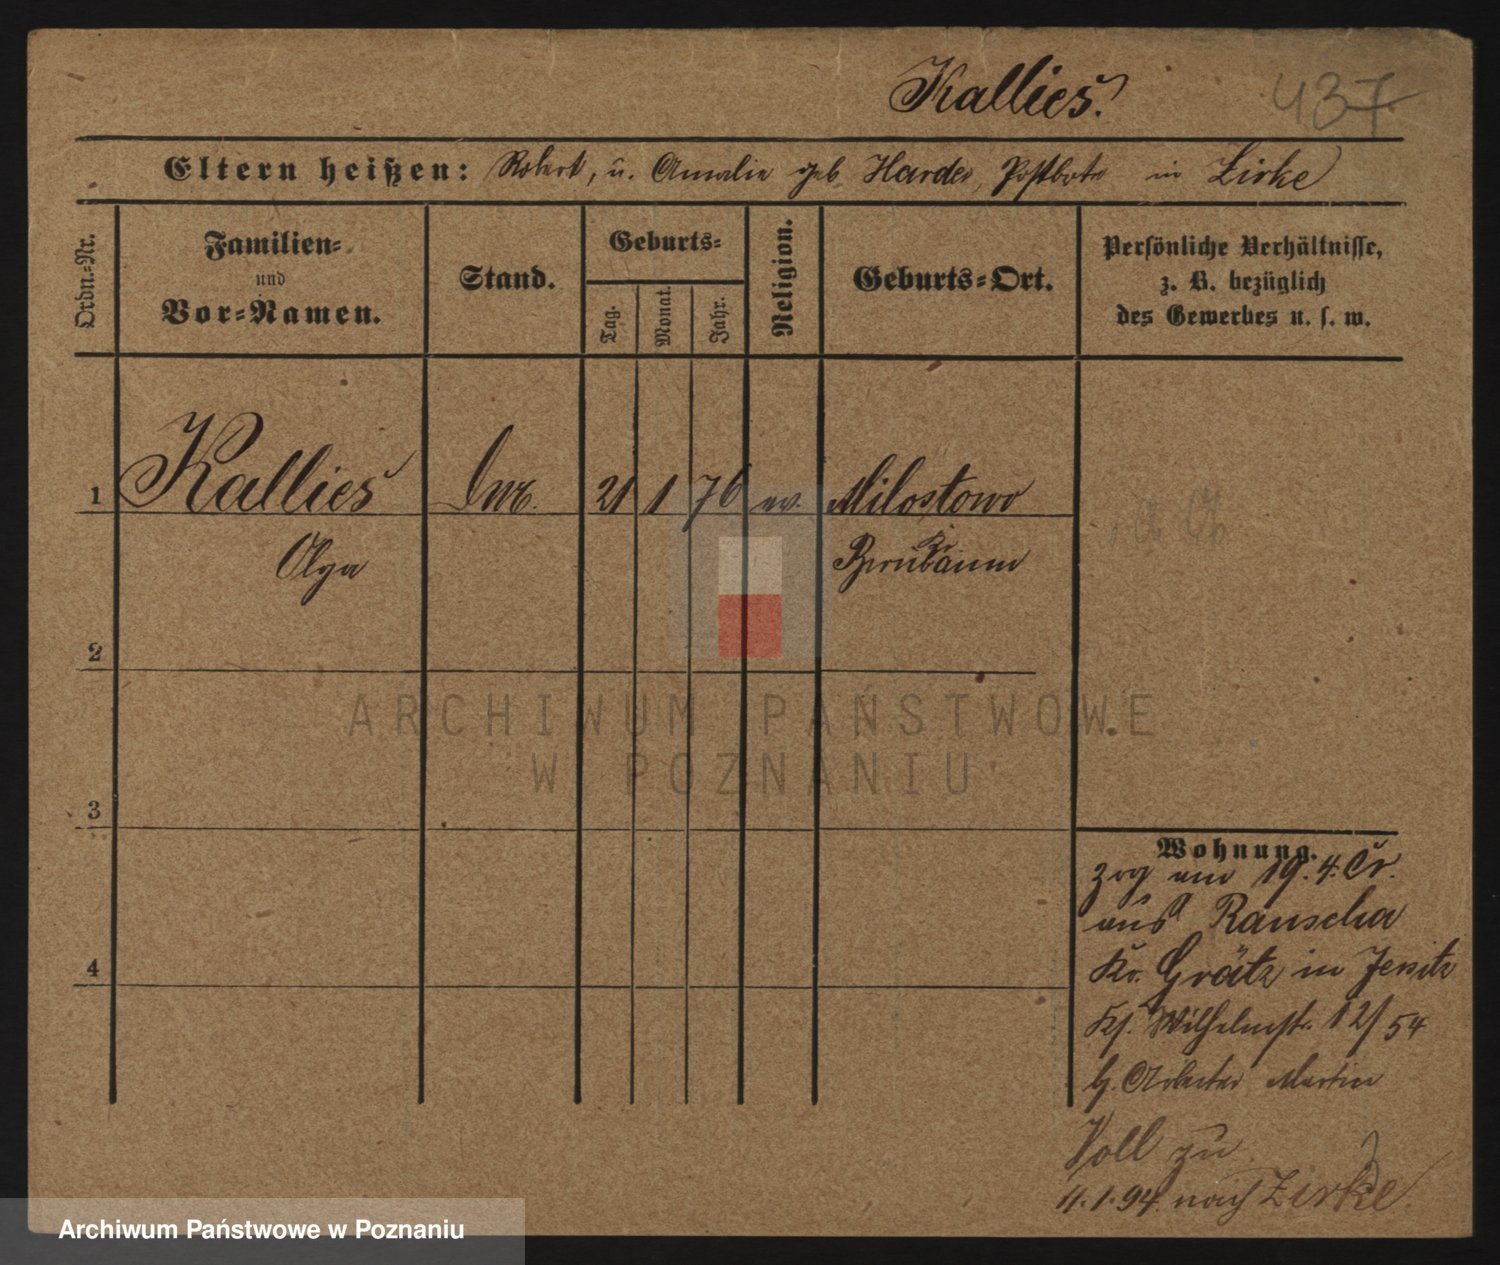 Kallies.
437.
Eltern heißen: Robert, u. Amalie geb Harder, Postbote in Zirke
Ordn.=Nr.
Familien=
und
Vor=Namen.
Stand.
Geburts=
Tag.
Monat.
Jahr.
Religion.
Geburts=Ort.
Persönliche Verhältnisse,
z. B. bezüglich
des Gewerbes u. s. w.
1 Kallies 21 1 76 ev. Milostowo
Olga Birnbaum
2
ARCHIWUM PAŃSTWOWE
W POZNANIU
3
Wohnung.
zog am 19. 4. Cr.
aus Rauscha
Kr. Grätz in Jersitz
Wilhelmstr. 12/54
b. Arbeiter Martin
4
zu
4.1.94 nach Zirke
Archiwum Państwowe w Poznaniu